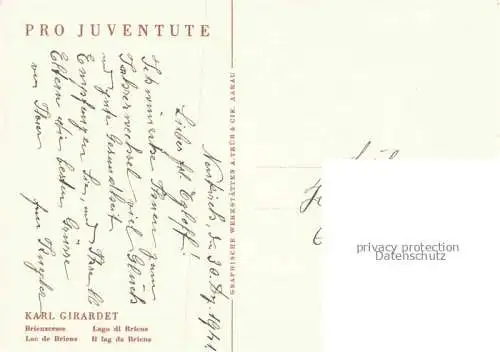 PRO JUVENTUTE
Neukirch, den 30. Dez. 1941.
Lieber Frl. Egloff!
Ich wünsche Ihnen zum
Jahreswechsel viel Glück
und gute Gesundheit
Empfangen Sie, und Ihre lb
Eltern die besten Grüsse
von Ihrer
KARL GIRARDET
Brienzersee Lago di Brienz
Lac de Brienz Il lag da Brienz
GRAPHISCHE WERKSTÄTTEN A. TRÜB & CIE. AARAU
privacy protection
Datenschutz